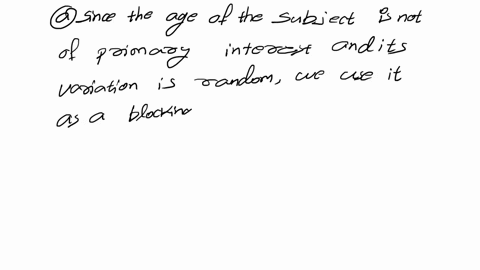 ⓐ Since the age of the subject is not
of primary interest and its
variation is random, we use it
as a blocking